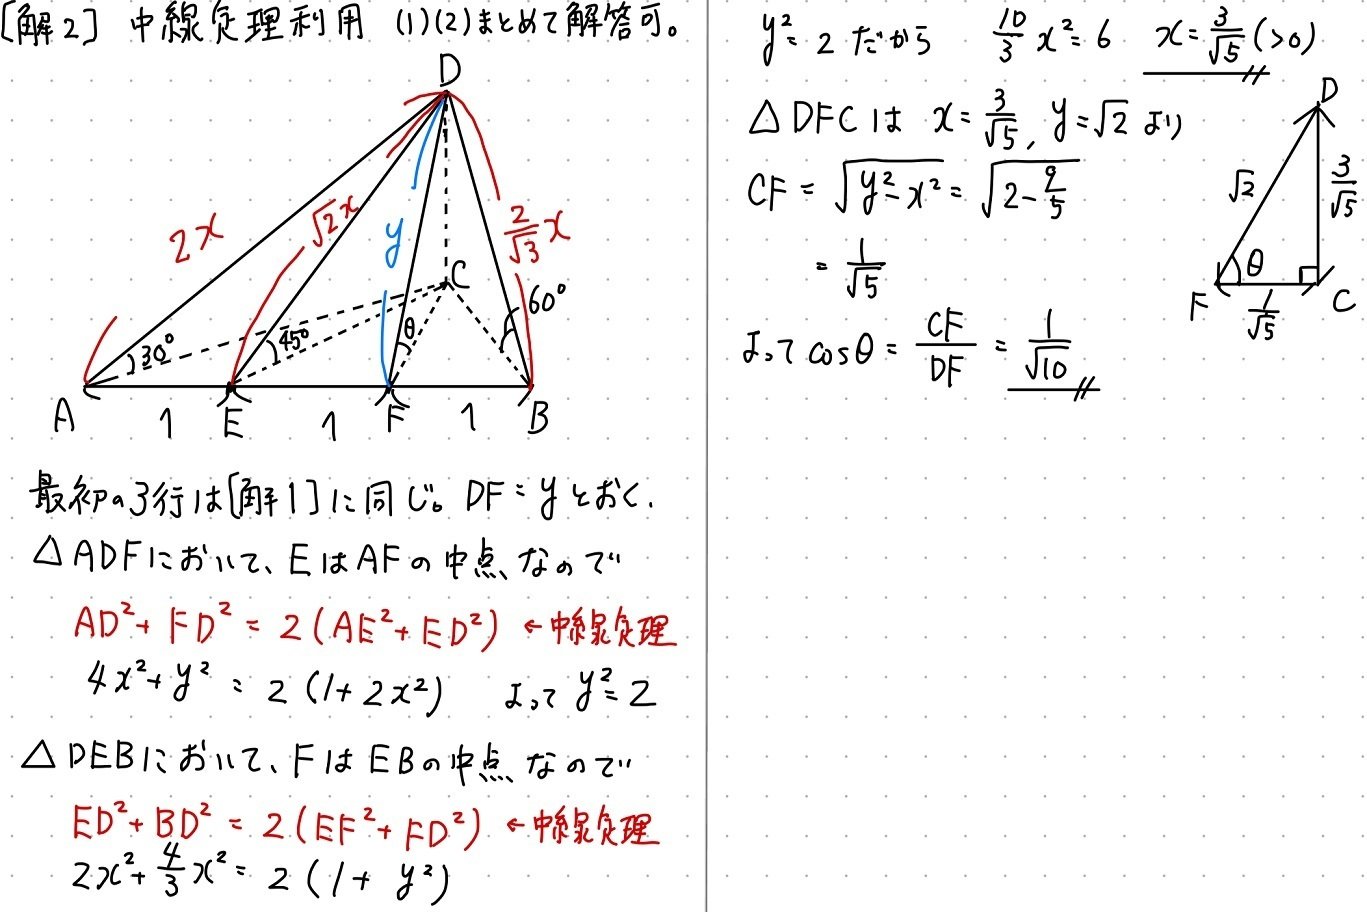 [解2] 中線定理利用 (1)(2)まとめて解答可。
D
2x
√2x
y
2/√3 x
C
60°
30°
45°
θ
A 1 E 1 F 1 B
最初の3行は[解1]に同じ。DF=yとおく.
△ADFにおいて、EはAFの中点なので
AD²+FD²=2(AE²+ED²) ←中線定理
4x²+y²=2(1+2x²) よって y²=2
△DEBにおいて、FはEBの中点なので
ED²+BD²=2(EF²+FD²) ←中線定理
2x²+4/3 x²=2(1+y²)
y²=2だから 10/3 x²=6 x=3/√5(>0)
△DFCは x=3/√5, y=√2より
CF=√(y²-x²)=√(2-9/5)
=1/√5
よって cosθ=CF/DF=1/√10
D
√2
3/√5
θ
F
1/√5
C